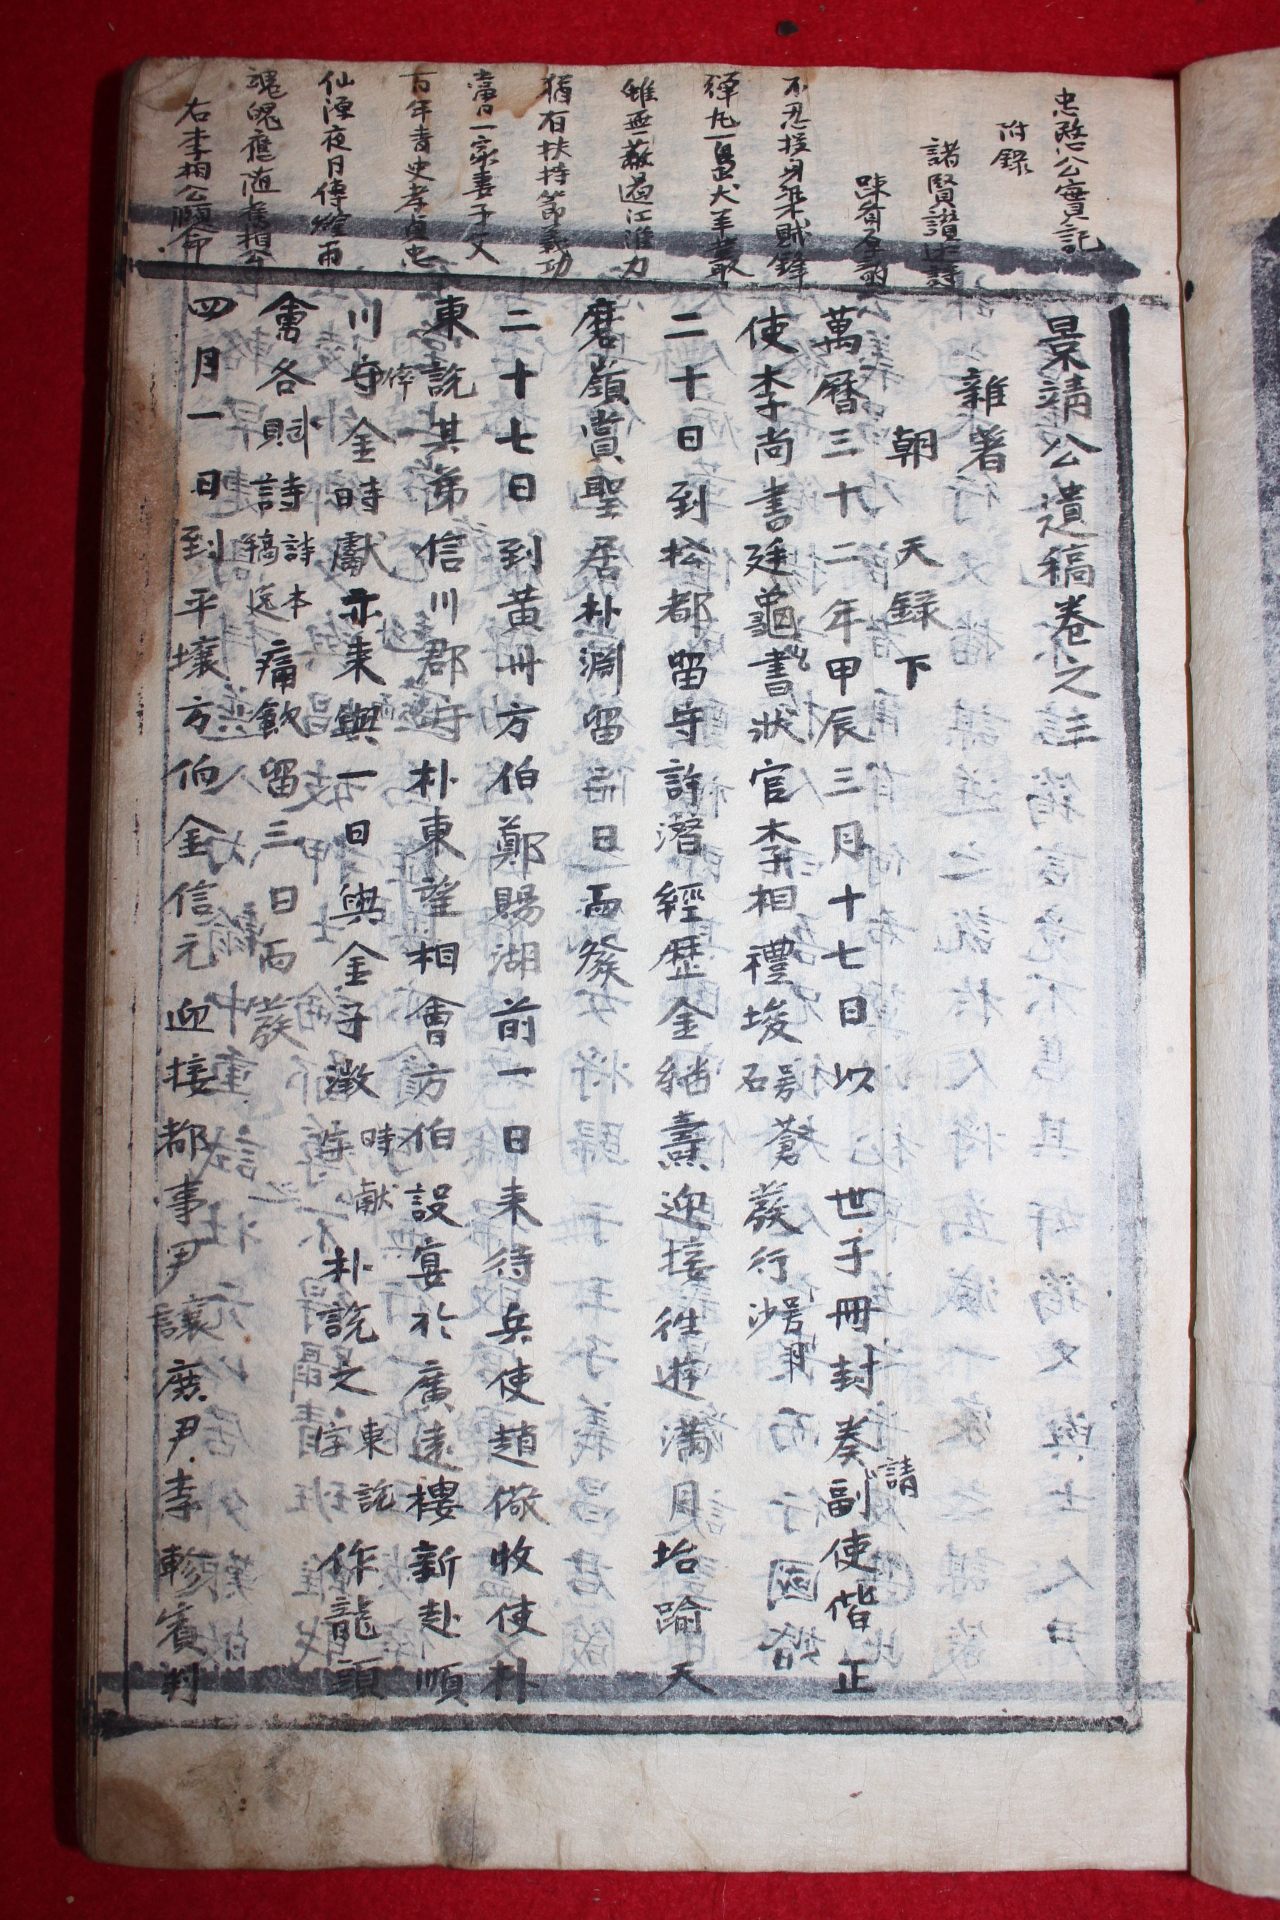 忠愍公實記
附錄
諸賢讃述詩
不忍挺身射賊鋒
彈丸一邑犬羊叢
雖無蔽遏江淮力
猶有扶持節義功
當日一家妻子父
百年靑史孝貞忠
仙湮夜月傳
魂魄應随崔相公
右李相公願命
景靖公遺稿卷之三
雜著
朝天錄下
萬曆三十二年甲辰三月十七日以世子冊封奏請副使偕正
使李尚書廷龜號書狀官李相禮埈號蒼發行
二十日到松都留守許潛經歷金緇壽迎接徃遊滿月坮踰天
磨嶺賞聖居朴淵留二日而發
二十七日到黃州方伯鄭賜湖前一日来待兵使趙儆收使朴
東說其弟信川郡守朴東望相會方伯設宴於廣遠樓新赴順
川守金時獻亦来與一日與金子徵時献朴說之東說字作龍頭
會各賦詩詩本稿逸痛飮留三日而發
四月一日到平壤方伯金信元迎接都事尹讓庶尹李軫賓判